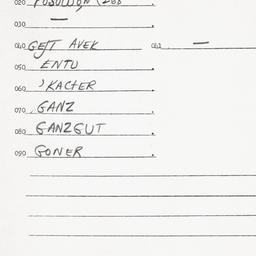 020
030 —
040 GEJT AVEK 041 —
050 ENTU
060 'KACTER
070 GANZ
080 GANZGUT
090 GONER